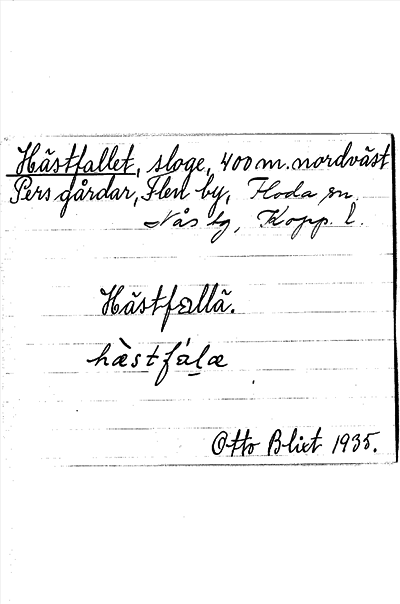 Hästfallet, sloge, 400 m. nordväst
Pers gårdar, Flen by, Floda sn.
Nås tg, Kopp. l.
Hästfallä.
hàstfàlæ
Otto Blixt 1935.